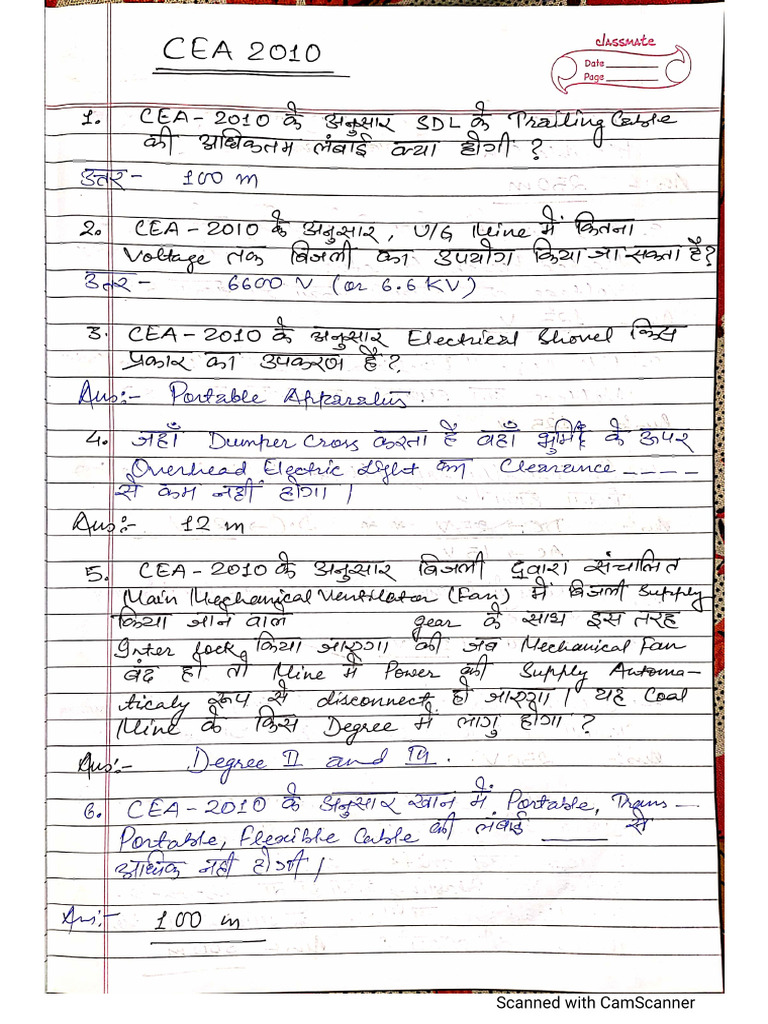 CEA 2010
classmate
Date
Page
1. CEA-2010 के अनुसार SDL के Trailing Cable
की अधिकतम लंबाई क्या होगी ?
उत्तर- 100 m
2. CEA-2010 के अनुसार, U/G Mine में कितना
Voltage तक बिजली का उपयोग किया जा सकता है?
उत्तर- 6600 V (or 6.6 KV)
3. CEA-2010 के अनुसार Electrical Shovel किस
प्रकार का उपकरण है ?
Ans:- Portable Apparatus.
4. जहाँ Dumper Cross करता है वहाँ भूमि के ऊपर
Overhead Electric Light का Clearance ----
से कम नहीं होगा ।
Ans:- 12 m
5. CEA-2010 के अनुसार बिजली द्वारा संचालित
Main Mechanical Ventilator (Fan) में बिजली supply
किया जाने वाल gear के साथ इस तरह
Inter lock किया जाएगा की जब Mechanical Fan
बंद हो तो Mine में Power की Supply Automa-
ticaly रूप से disconnect हो जाएगा । यह Coal
Mine के किस Degree में लागु होगा ?
Ans:- Degree II and III.
6. CEA-2010 के अनुसार खान में Portable, Trans-
Portable, Flexible Cable की लंबाई ____ से
अधिक नहीं होगी ।
Ans:- 100 m
Scanned with CamScanner